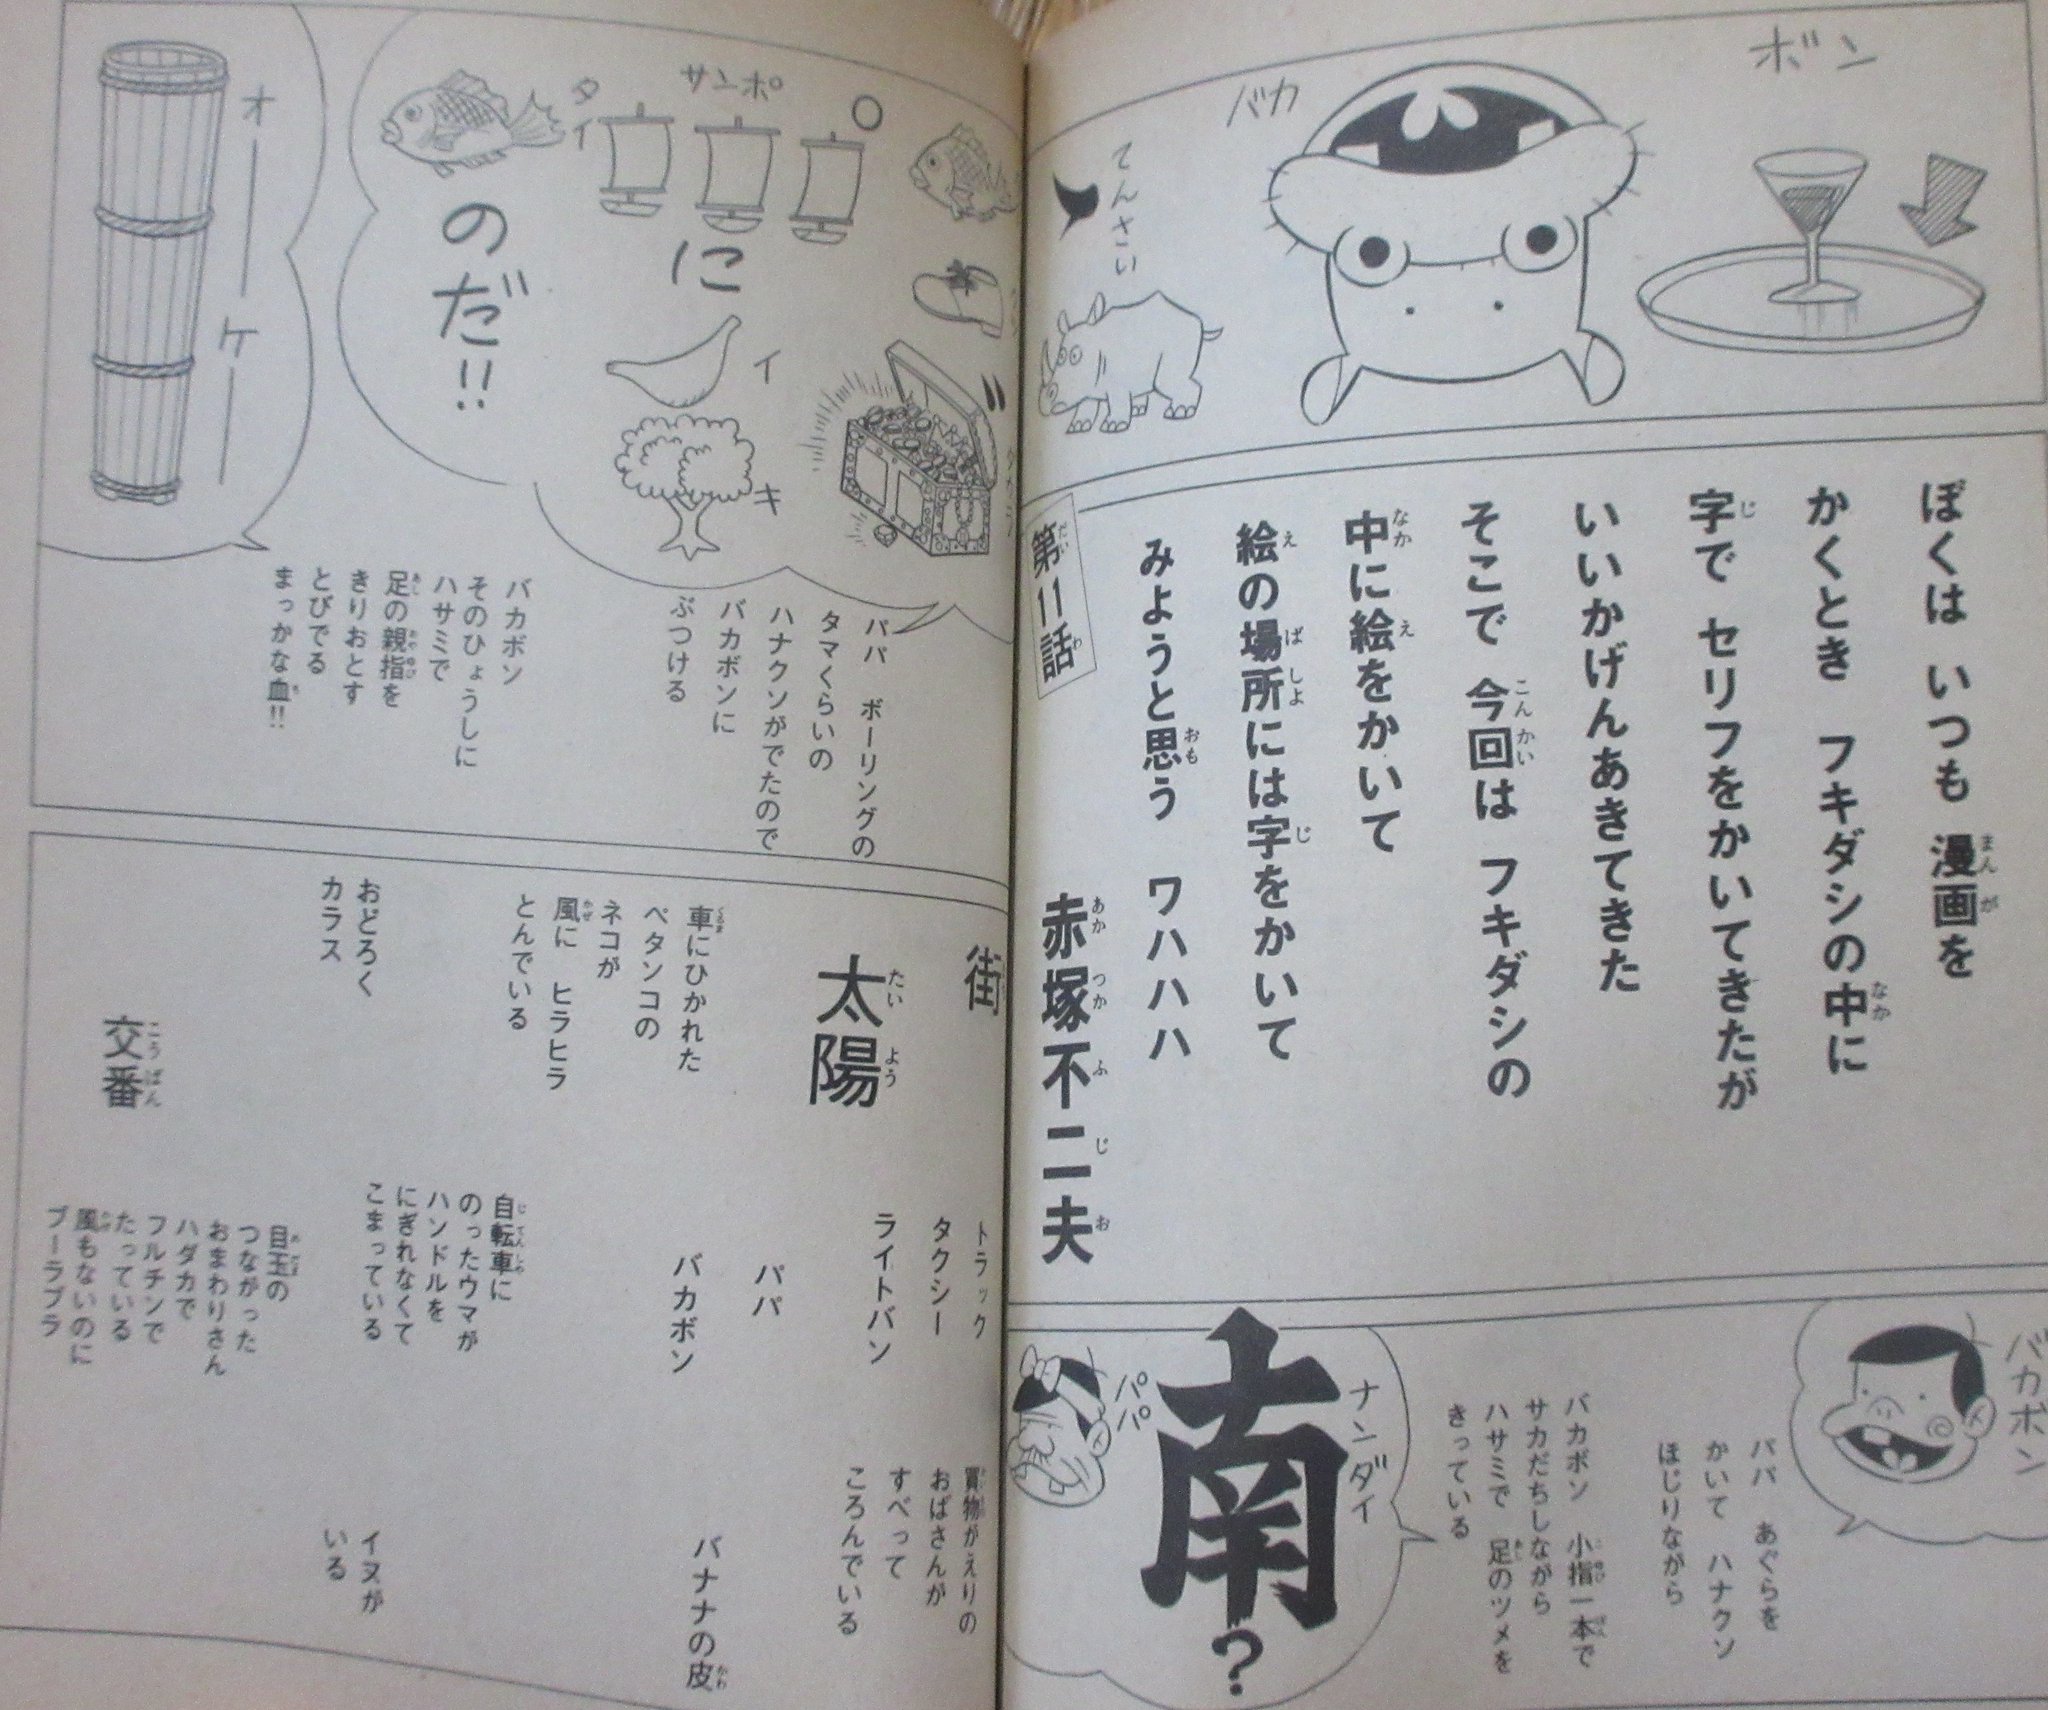 ボン
バカ
てんさい
ぼくは いつも 漫画を
かくとき フキダシの中に
字で セリフをかいてきたが
いいかげんあきてきた
そこで 今回は フキダシの
中に絵をかいて
絵の場所には字をかいて
みようと思う ワハハハ
第11話
赤塚不二夫
バカボン
パパ あぐらを
かいて ハナクソ
ほじりながら
バカボン 小指一本で
サカだちしながら
ハサミで 足のツメを
きっている
ナンダイ
南?
パパ
サンポ
に
イ
キ
タイ
のだ!!
パパ ボーリングの
タマくらいの
ハナクソがでたので
バカボンに
ぶつける
オーケー
バカボン
そのひょうしに
ハサミで
足の親指を
きりおとす
とびでる
まっかな血!!
街
太陽
トラック
タクシー
ライトバン
買物がえりの
おばさんが
すべって
ころんでいる
パパ
バカボン
バナナの皮
車にひかれた
ペタンコの
ネコが
風に ヒラヒラ
とんでいる
自転車に
のったウマが
ハンドルを
にぎれなくて
こまっている
おどろく
カラス
イヌが
いる
交番
目玉の
つながった
おまわりさん
ハダカで
フルチンで
たっている
風もないのに
ブーラブラ